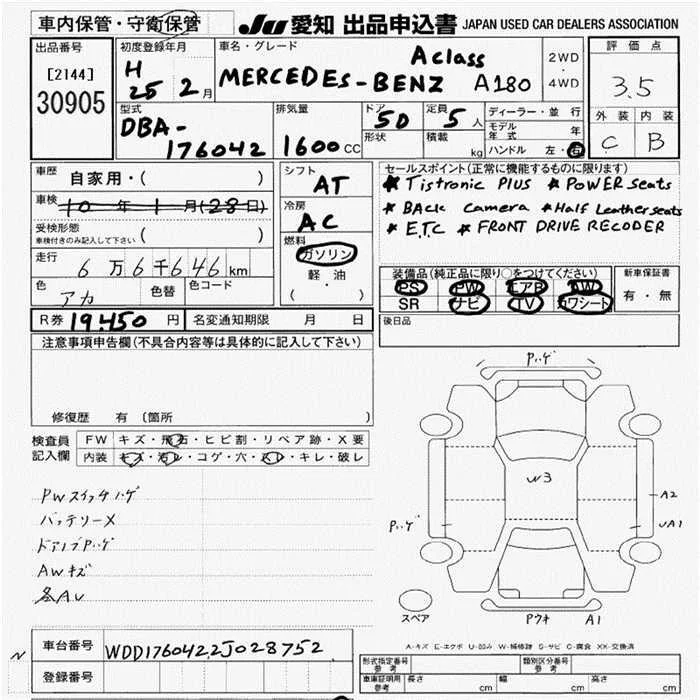 車内保管・守衛保管 JU 愛知 出品申込書 JAPAN USED CAR DEALERS ASSOCIATION
出品番号 初度登録年月 車名・グレード 評価点
[2144] H A class 2WD
30905 25 2月 MERCEDES-BENZ A180 ・ 3.5
4WD
型式 排気量 ドア 定員 ディーラー・並行 外装 内装
DBA- 5D 5人 モデル年式 年 C B
176042 1600CC 形状 積載 kg ハンドル 左・右
車歴 自家用・( ) シフト セールスポイント(正常に機能するものに限ります)
AT * Tistronic PLUS * POWER seats
車検 10年1月(28日) 冷房 * BACK Camera * Half Leather seats
受検形態 AC * ETC * FRONT DRIVE RECODER
車検付きのみ記入して下さい ( )
走行 燃料
6万6千646km ガソリン 装備品(純正品に限り○をつけてください) 新車保証書
色 色替 色コード 軽油 PS PW エアB AW 有・無
アカ ( ・ ) SR ナビ TV カワシート
R券 19,450円 名変通知期限 月 日 後日品
注意事項申告欄(不具合内容等は具体的に記入して下さい)
Pハゲ
修復歴 有 (箇所 )
検査員 FW キズ・飛石・ヒビ割・リペア跡・X要
記入欄 内装 キズ・汚レ・コゲ・穴・スレ・キレ・破レ
W3
PWスイッチハゲ A2
バッテリーメ Pハゲ UA1
ドアノブPハゲ
AWキズ
各AU
スペア Pウキ A1
A-キズ E-エクボ U-凹み W-補修跡 S-サビ C-腐食 XX-交換済
車台番号 WDD1760422J028752
登録番号 形式指定番号 参考 類別区分番号 参考
車庫証明用 参考 長さ cm 幅 cm 高さ cm